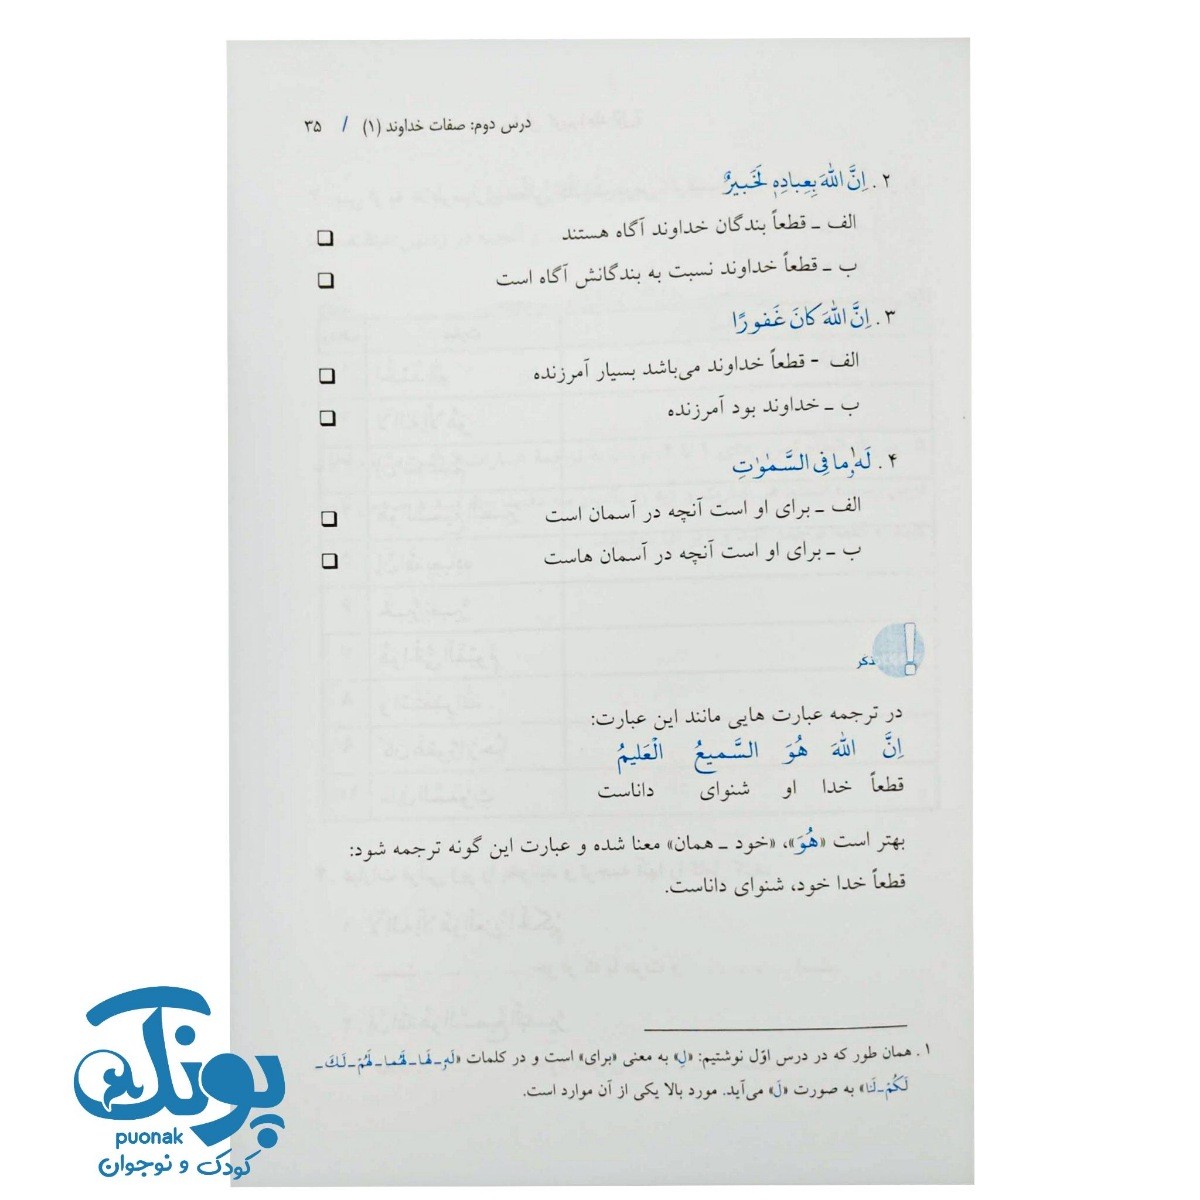 درس دوم: صفات خداوند (۱) / ۳۵
۲. اِنَّ اللهَ بِعِبادِهٖ لَخَبیرٌ
الف ـ قطعاً بندگان خداوند آگاه هستند ❑
ب ـ قطعاً خداوند نسبت به بندگانش آگاه است ❑
۳. اِنَّ اللهَ کانَ غَفورًا
الف - قطعاً خداوند می‌باشد بسیار آمرزنده ❑
ب ـ خداوند بود آمرزنده ❑
۴. لَهٗ ما فِی السَّمٰوٰتِ
الف ـ برای او است آنچه در آسمان است ❑
ب ـ برای او است آنچه در آسمان هاست ❑
در ترجمه عبارت هایی مانند این عبارت:
اِنَّ اللهَ هُوَ السَّمیعُ الْعَلیمُ
قطعاً خدا او شنوای داناست
بهتر است «هُوَ»، «خود ـ همان» معنا شده و عبارت این گونه ترجمه شود:
قطعاً خدا خود، شنوای داناست.
۱. همان طور که در درس اوّل نوشتیم: «لِ» به معنی «برای» است و در کلمات «لَهٗ ـ لَها ـ لَهُما ـ لَهُمْ ـ لَکَ ـ
لَکُمْ ـ لَنا» به صورت «لَ» می‌آید. مورد بالا یکی از آن موارد است.
پونک
puonak
کودک و نوجوان